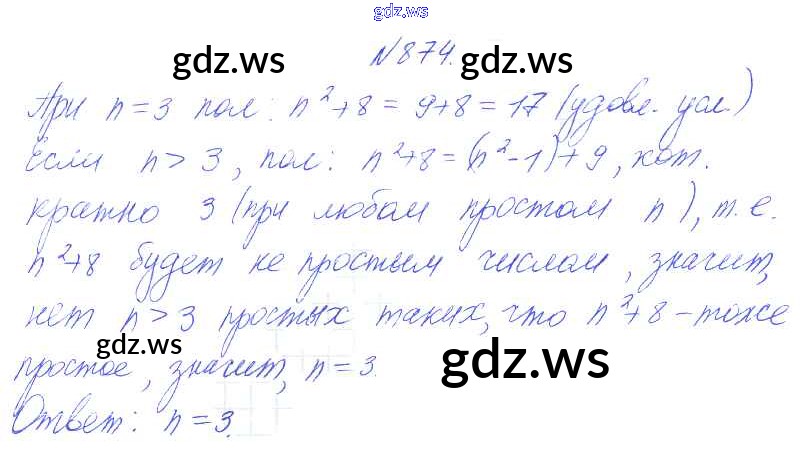 gdz.ws
gdz.ws
N 874.
gdz.ws
При n = 3 пол: n² + 8 = 9 + 8 = 17 (удовл. усл.)
Если n > 3, пол: n² + 8 = (n² - 1) + 9, кот.
кратно 3 (при любом простом n), т. е.
n² + 8 будет не простым числом, значит,
нет n > 3 простых таких, что n² + 8 - тоже
gdz.ws
простое, значит, n = 3.
gdz.ws
Ответ: n = 3.